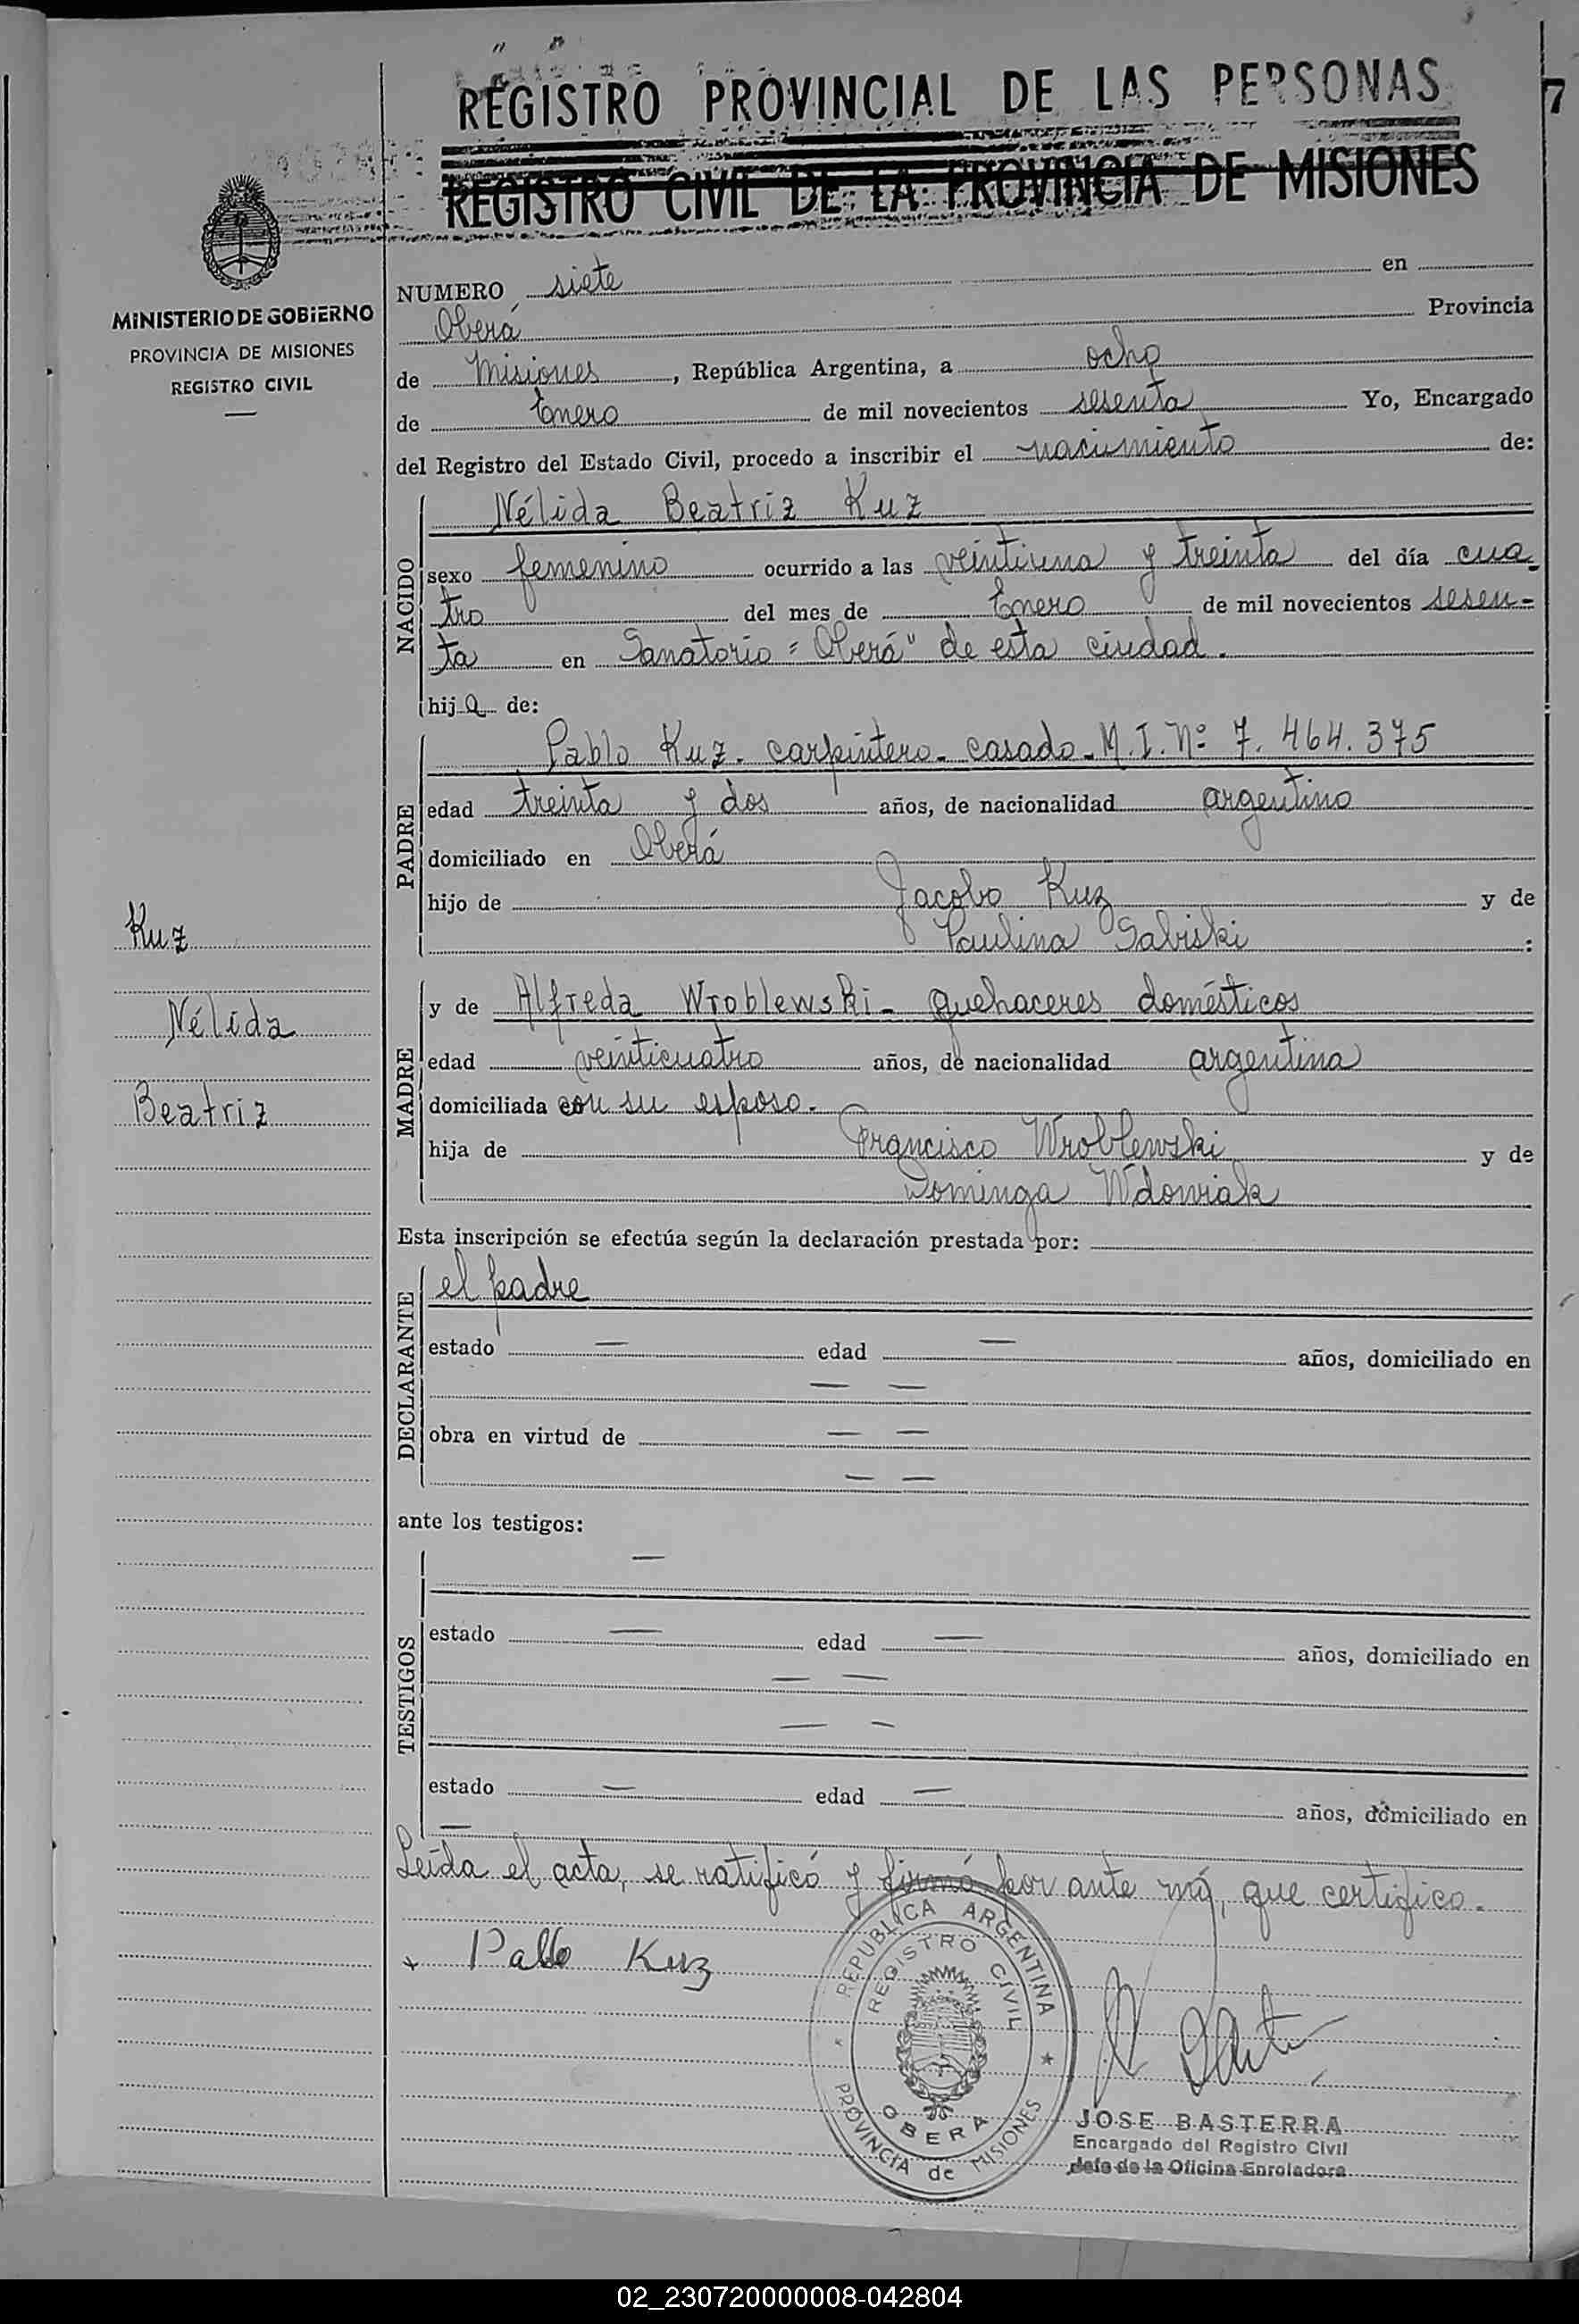 REGISTRO PROVINCIAL DE LAS PERSONAS
7
REGISTRO CIVIL DE LA PROVINCIA DE MISIONES
MINISTERIO DE GOBIERNO
PROVINCIA DE MISIONES
REGISTRO CIVIL
NUMERO siete en
Oberá Provincia
de Misiones, República Argentina, a ocho
de Enero de mil novecientos sesenta Yo, Encargado
del Registro del Estado Civil, procedo a inscribir el nacimiento de:
NACIDO
Nélida Beatriz Kuz
sexo femenino ocurrido a las veintiuna y treinta del día cua-
tro del mes de Enero de mil novecientos sesen-
ta en Sanatorio "Oberá" de esta ciudad.
hija de:
PADRE
Pablo Kuz - carpintero - casado - M.I. Nº 7.464.375
edad treinta y dos años, de nacionalidad argentino
domiciliado en Oberá
hijo de Jacobo Kuz y de
Paulina Sabiski :
Kuz
Nélida
Beatriz
MADRE
y de Alfreda Wroblewski - quehaceres domésticos
edad veinticuatro años, de nacionalidad argentina
domiciliada con su esposo.
hija de Francisco Wroblewski y de
Dominga Wdowiak
Esta inscripción se efectúa según la declaración prestada por:
DECLARANTE
el padre
estado — edad — años, domiciliado en
— —
obra en virtud de — —
— —
ante los testigos:
TESTIGOS
—
estado — edad — años, domiciliado en
— —
— —
estado — edad — años, domiciliado en
—
Leída el acta, se ratificó y firmó por ante mí, que certifico.
Pablo Kuz
REPUBLICA ARGENTINA
REGISTRO CIVIL
OBERA
PROVINCIA de MISIONES
JOSE BASTERRA
Encargado del Registro Civil
Jefe de la Oficina Enroladora
02_230720000008-042804